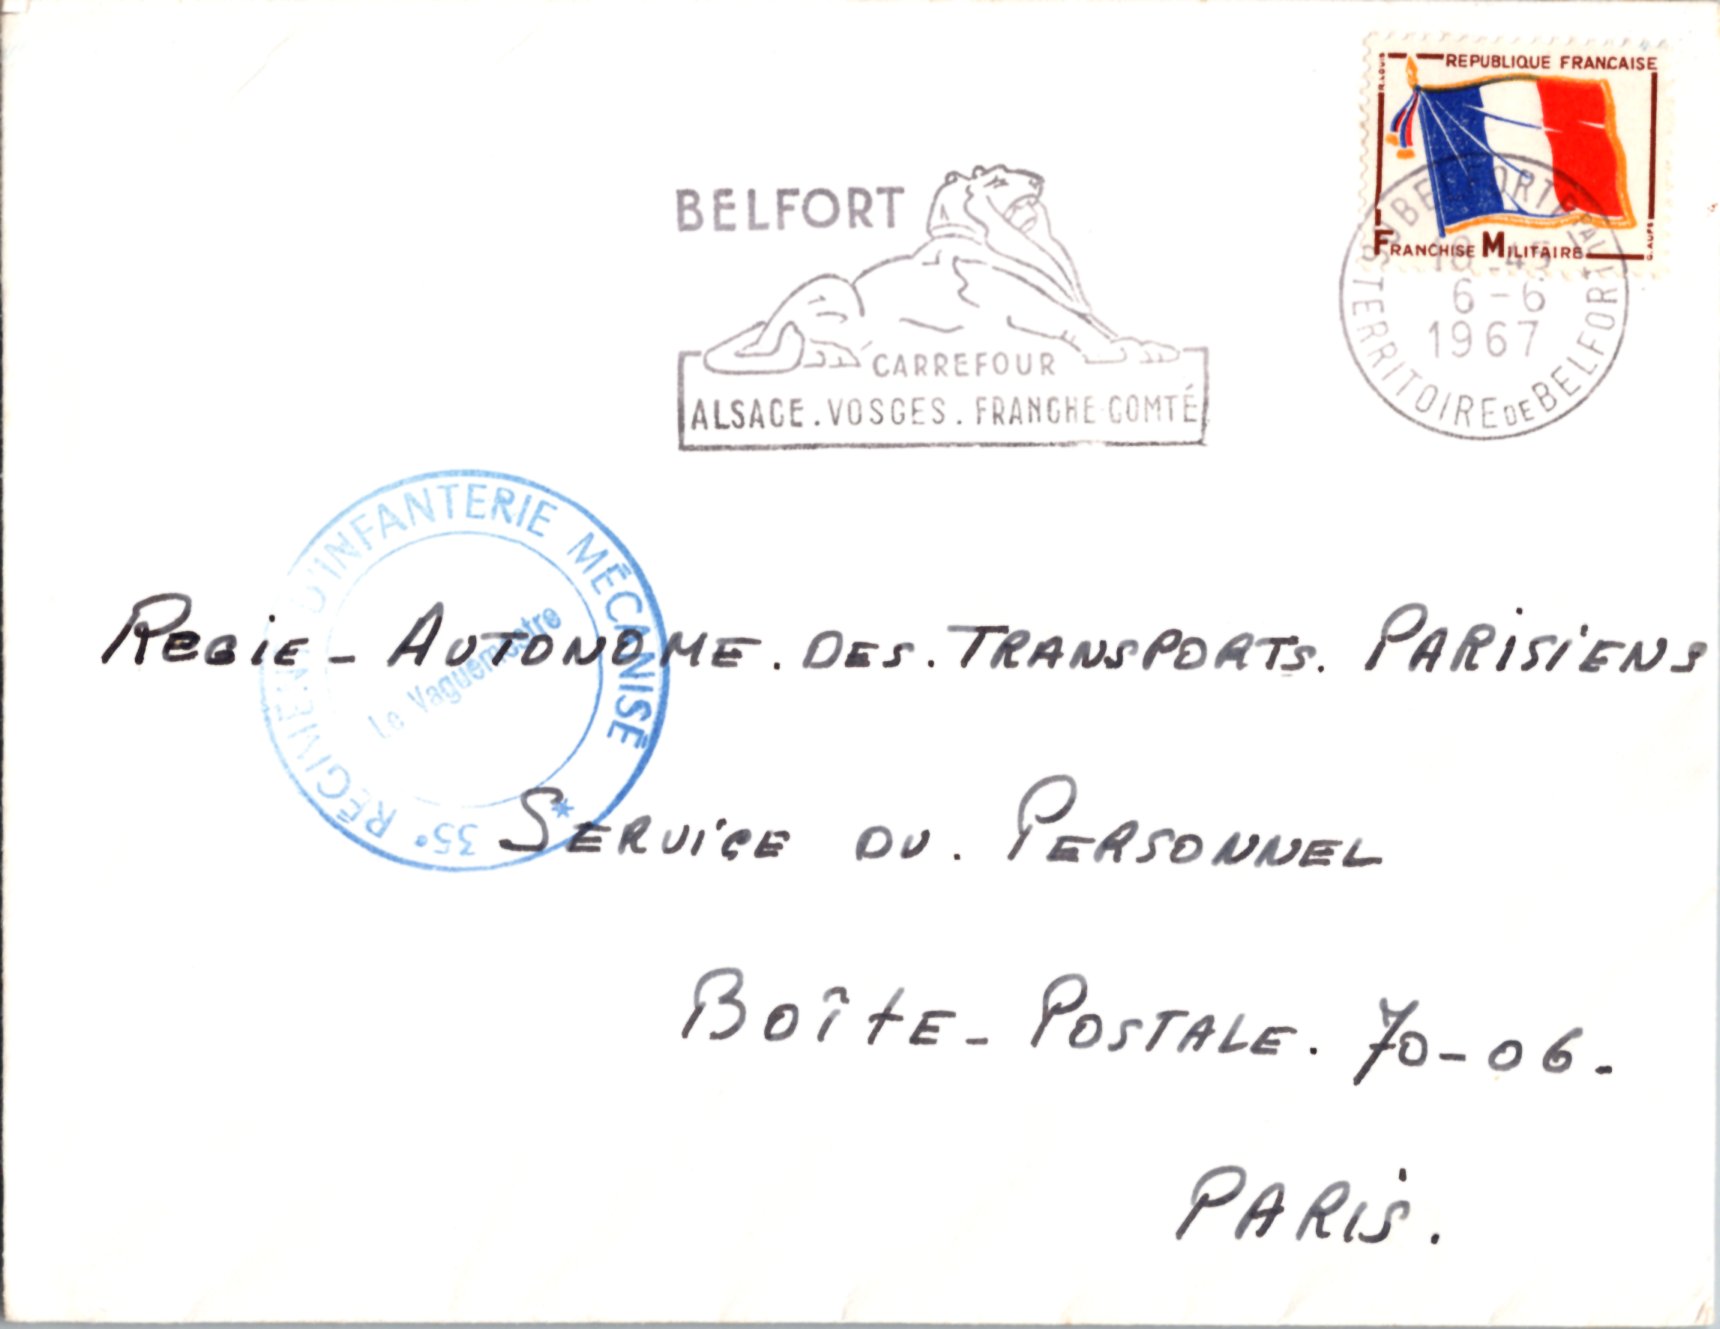 REPUBLIQUE FRANCAISE
R. LOUIS
FRANCHISE MILITAIRE
G. AUFS
BELFORT
CARREFOUR
ALSACE . VOSGES . FRANCHE-COMTÉ
BELFORT
18-45
6-6
1967
TERRITOIRE DE BELFORT
35e RÉGIMENT D'INFANTERIE MÉCANISÉ
Le Vaguemestre
REGIE - AUTONOME . DES . TRANSPORTS . PARISIENS
SERVICE DU . PERSONNEL
BOÎTE - POSTALE . 70-06 -
PARIS .